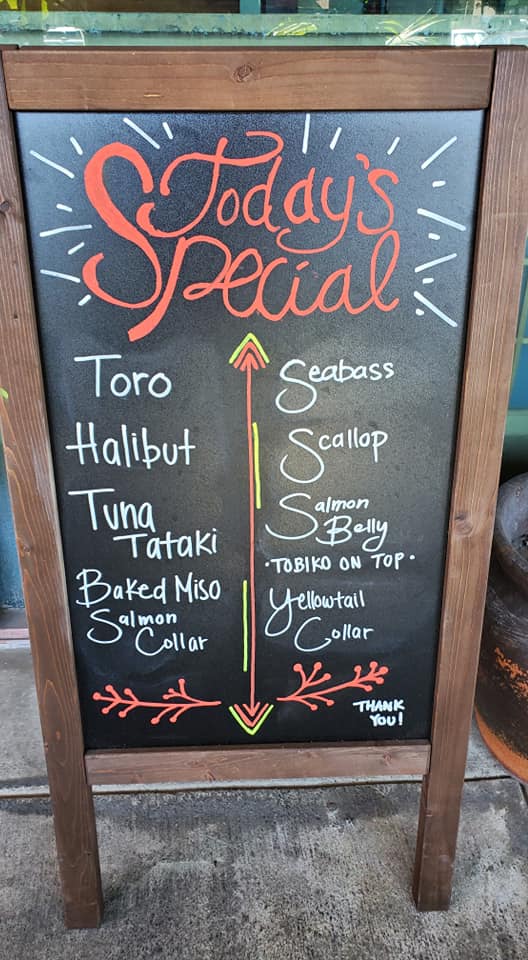 Today's
Special
Toro
Halibut
Tuna
Tataki
Baked Miso
Salmon
Collar
Seabass
Scallop
Salmon
Belly
• TOBIKO ON TOP •
Yellowtail
Collar
THANK
YOU!